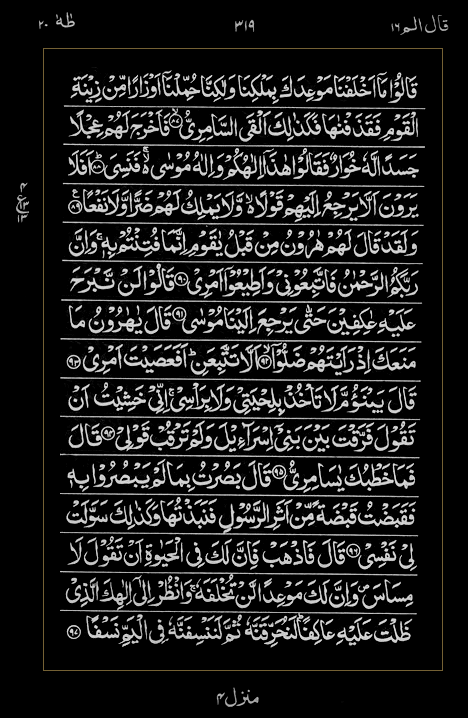 قال الم ١٦
٣١٩
طٰهٰ ٢٠
قَالُوْا مَاۤ اَخْلَفْنَا مَوْعِدَكَ بِمَلْكِنَا وَلٰكِنَّا حُمِّلْنَاۤ اَوْزَارًا مِّنْ زِيْنَةِ
الْقَوْمِ فَقَذَفْنٰهَا فَكَذٰلِكَ اَلْقَى السَّامِرِىُّ ۙ‏﴿۸۷﴾ فَاَخْرَجَ لَهُمْ عِجْلًا
جَسَدًا لَّهٗ خُوَارٌ فَقَالُوْا هٰذَاۤ اِلٰهُكُمْ وَاِلٰهُ مُوْسٰى ۬ فَنَسِىَ ؕ‏﴿۸۸﴾ اَفَلَا
يَرَوْنَ اَلَّا يَرْجِعُ اِلَيْهِمْ قَوْلًا ۙ وَّلَا يَمْلِكُ لَهُمْ ضَرًّا وَّلَا نَفْعًا ﴿۸۹﴾ ع
٤
ع ١٣
١٣
وَلَقَدْ قَالَ لَهُمْ هٰرُوْنُ مِنْ قَبْلُ يٰقَوْمِ اِنَّمَا فُتِنْتُمْ بِهٖ ۚ وَاِنَّ
رَبَّكُمُ الرَّحْمٰنُ فَاتَّبِعُوْنِىْ وَاَطِيْعُوْۤا اَمْرِىْ ﴿۹۰﴾ قَالُوْا لَنْ نَّبْرَحَ
عَلَيْهِ عٰكِفِيْنَ حَتّٰى يَرْجِعَ اِلَيْنَا مُوْسٰى ﴿۹۱﴾ قَالَ يٰهٰرُوْنُ مَا
مَنَعَكَ اِذْ رَاَيْتَهُمْ ضَلُّوْۤا ۙ‏﴿۹۲﴾ اَلَّا تَتَّبِعَنِ ؕ اَفَعَصَيْتَ اَمْرِىْ ﴿۹۳﴾
قَالَ يَبْنَؤُمَّ لَا تَاْخُذْ بِلِحْيَتِىْ وَلَا بِرَاْسِىْ ۚ اِنِّىْ خَشِيْتُ اَنْ
تَقُوْلَ فَرَّقْتَ بَيْنَ بَنِىْۤ اِسْرَآءِيْلَ وَلَمْ تَرْقُبْ قَوْلِىْ ﴿۹۴﴾ قَالَ
فَمَا خَطْبُكَ يٰسَامِرِىُّ ﴿۹۵﴾ قَالَ بَصُرْتُ بِمَا لَمْ يَبْصُرُوْا بِهٖ
فَقَبَضْتُ قَبْضَةً مِّنْ اَثَرِ الرَّسُوْلِ فَنَبَذْتُهَا وَكَذٰلِكَ سَوَّلَتْ
لِىْ نَفْسِىْ ﴿۹۶﴾ قَالَ فَاذْهَبْ فَاِنَّ لَكَ فِى الْحَيٰوةِ اَنْ تَقُوْلَ لَا
مِسَاسَ ۪ وَاِنَّ لَكَ مَوْعِدًا لَّنْ تُخْلَفَهٗ ۚ وَانْظُرْ اِلٰٓى اِلٰهِكَ الَّذِىْ
ظَلْتَ عَلَيْهِ عَاكِفًا ؕ لَنُحَرِّقَنَّهٗ ثُمَّ لَنَنْسِفَنَّهٗ فِى الْيَمِّ نَسْفًا ﴿۹۷﴾
منزل ٤